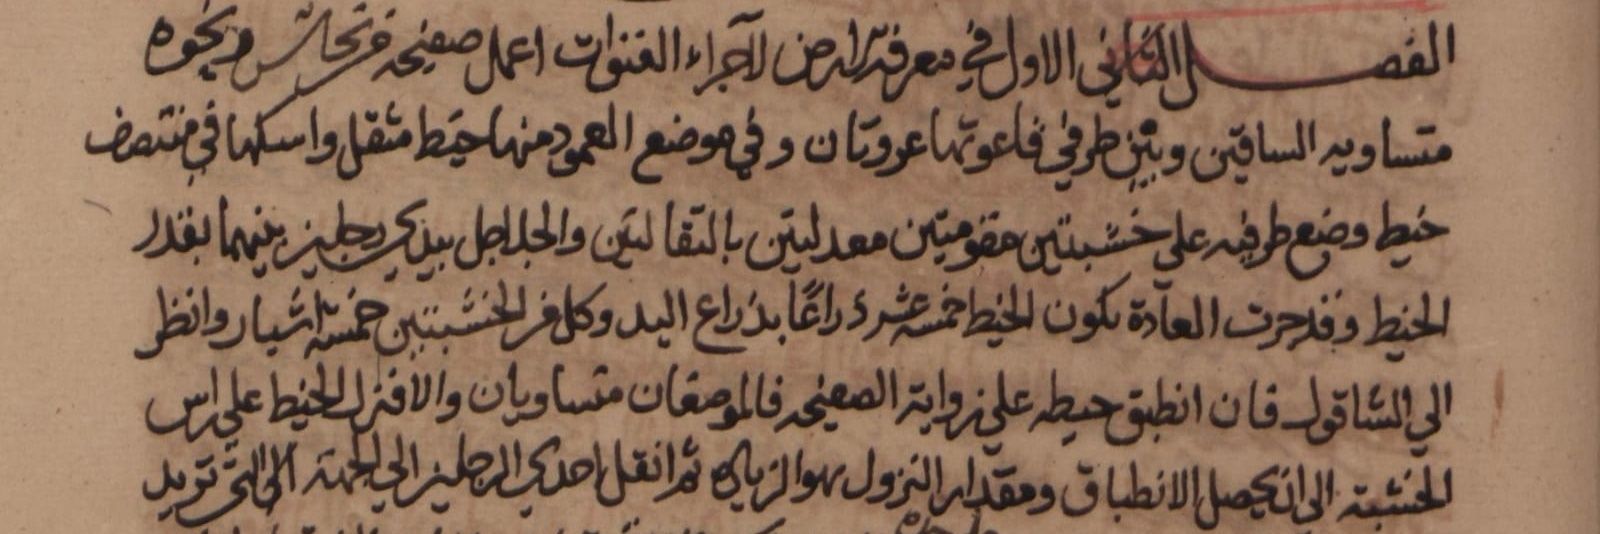 الفصل الثاني الاول في معرفة الارض لاجراء القنوات اعمل صفيحة من نحاس ونحوه
متساويه الساقين وبين طرفي قاعوتها عروتان وفي موضع العمود منها خيط مثقل واسلكها في منتصف
خيط وضع طرفيه علي خشبتين مقومتين معدلتين بالثقالتين والجلاجل بيدي رجلين بينهما بقدر
الخيط وقد جرت العادة بكون الخيط خمسة عشر ذراعًا بذراع اليد وكل من الخشبتين خمسة اشبار وانظر
الي الشاقول فان انطبق خيطه علي زواية الصفيحه فالموضعان متساويان والا فنزل الخيط علي راس
الخشبة الى ان يحصل الانطباق ومقدار النزول هو الزياده ثم انقل احدي الرجلين الي الجهة التي تريد